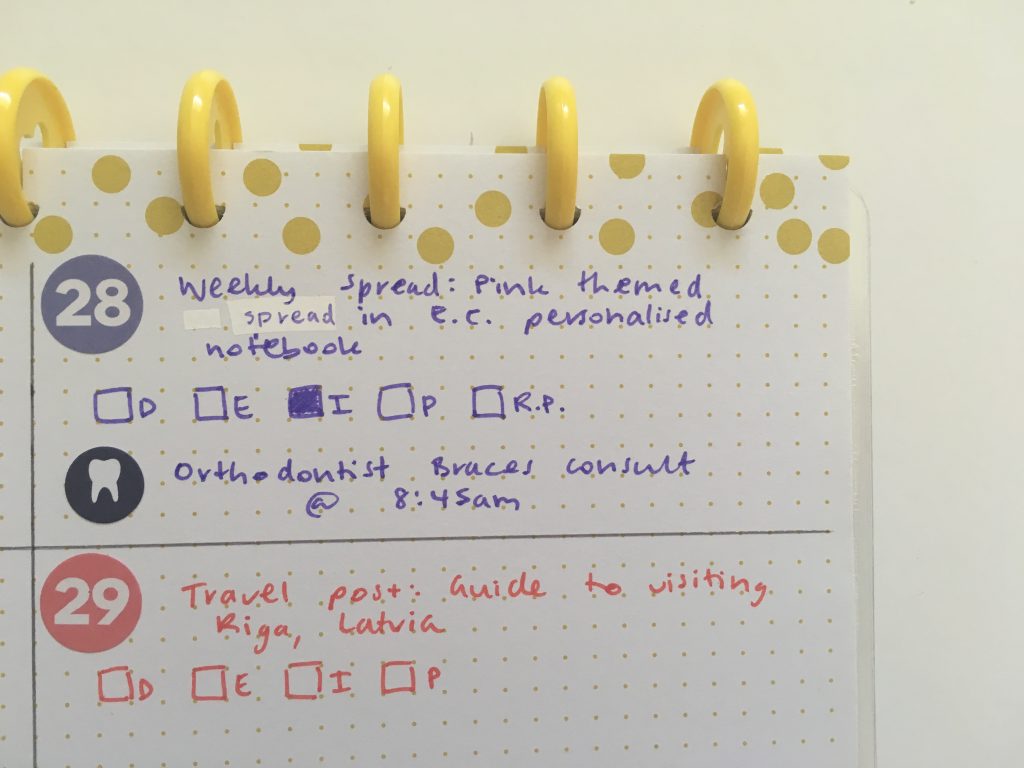 28
Weekly spread: Pink themed
spread in E.C. personalised
notebook
D E I P R.P.
Orthodontist Braces consult
@ 8:45am
29
Travel post: Guide to visiting
Riga, Latvia
D E I P